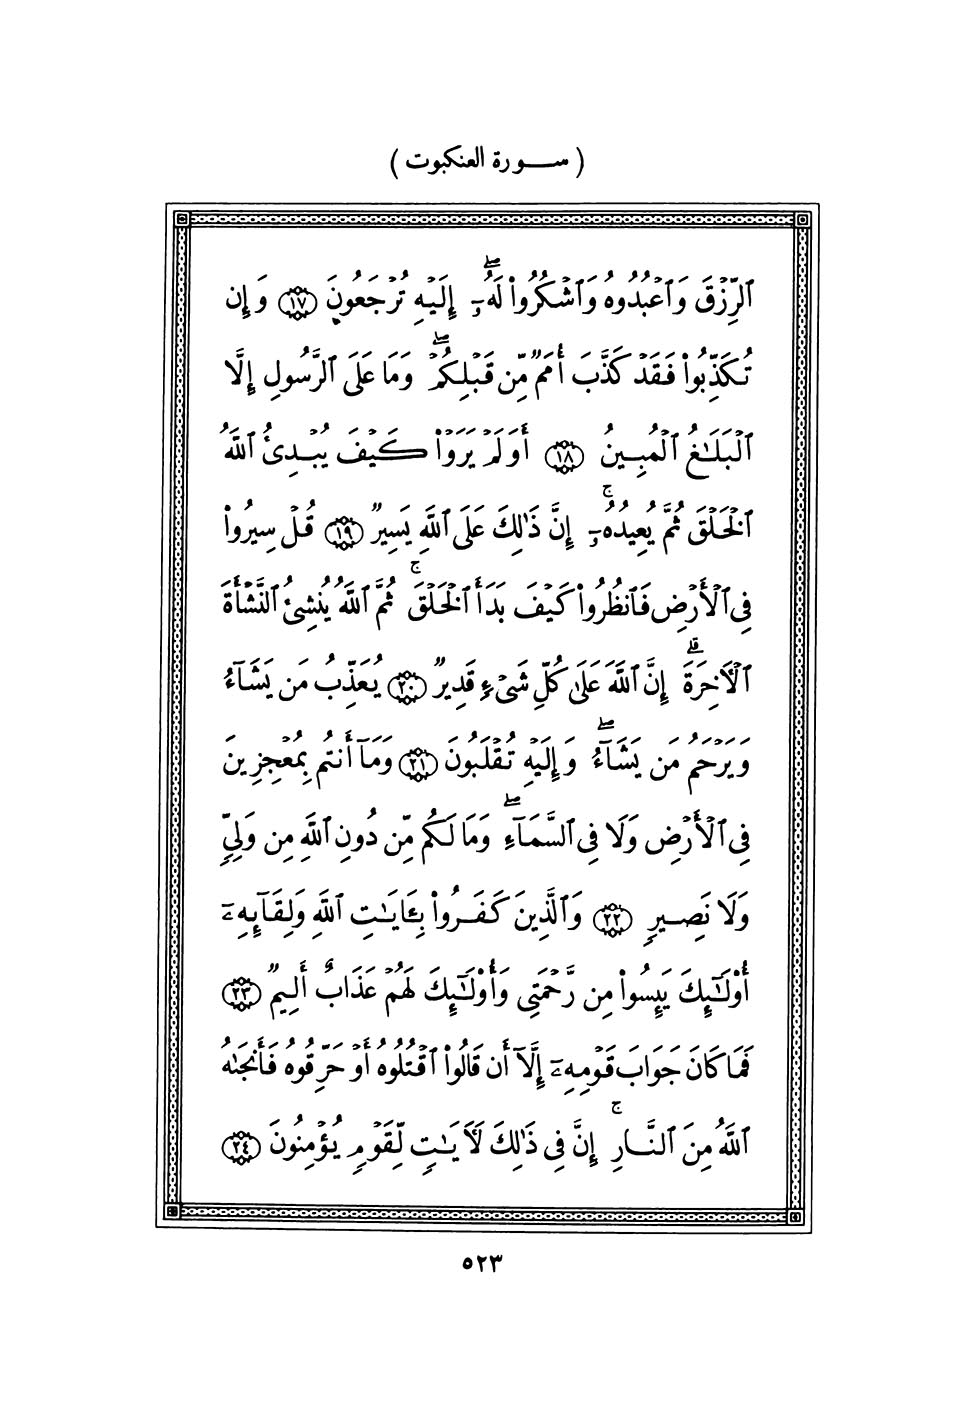 ( ســـورة العنكبوت )
ٱلرِّزۡقَ وَٱعۡبُدُوهُ وَٱشۡكُرُواْ لَهُۥٓۖ إِلَيۡهِ تُرۡجَعُونَ ١٧ وَإِن
تُكَذِّبُواْ فَقَدۡ كَذَّبَ أُمَمٞ مِّن قَبۡلِكُمۡۖ وَمَا عَلَى ٱلرَّسُولِ إِلَّا
ٱلۡبَلَٰغُ ٱلۡمُبِينُ ١٨ أَوَلَمۡ يَرَوۡاْ كَيۡفَ يُبۡدِئُ ٱللَّهُ
ٱلۡخَلۡقَ ثُمَّ يُعِيدُهُۥٓۚ إِنَّ ذَٰلِكَ عَلَى ٱللَّهِ يَسِيرٞ ١٩ قُلۡ سِيرُواْ
فِي ٱلۡأَرۡضِ فَٱنظُرُواْ كَيۡفَ بَدَأَ ٱلۡخَلۡقَۚ ثُمَّ ٱللَّهُ يُنشِئُ ٱلنَّشۡأَةَ
ٱلۡأٓخِرَةَۚ إِنَّ ٱللَّهَ عَلَىٰ كُلِّ شَيۡءٖ قَدِيرٞ ٢٠ يُعَذِّبُ مَن يَشَآءُ
وَيَرۡحَمُ مَن يَشَآءُۖ وَإِلَيۡهِ تُقۡلَبُونَ ٢١ وَمَآ أَنتُم بِمُعۡجِزِينَ
فِي ٱلۡأَرۡضِ وَلَا فِي ٱلسَّمَآءِۖ وَمَا لَكُم مِّن دُونِ ٱللَّهِ مِن وَلِيّٖ
وَلَا نَصِيرٖ ٢٢ وَٱلَّذِينَ كَفَرُواْ بِـَٔايَٰتِ ٱللَّهِ وَلِقَآئِهِۦٓ
أُوْلَٰٓئِكَ يَئِسُواْ مِن رَّحۡمَتِي وَأُوْلَٰٓئِكَ لَهُمۡ عَذَابٌ أَلِيمٞ ٢٣
فَمَا كَانَ جَوَابَ قَوۡمِهِۦٓ إِلَّآ أَن قَالُواْ ٱقۡتُلُوهُ أَوۡ حَرِّقُوهُ فَأَنجَىٰهُ
ٱللَّهُ مِنَ ٱلنَّارِۚ إِنَّ فِي ذَٰلِكَ لَأٓيَٰتٖ لِّقَوۡمٖ يُؤۡمِنُونَ ٢٤
٥٢٣